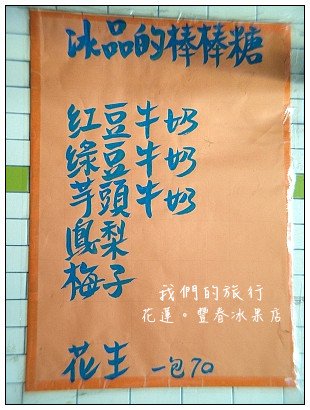 冰品的棒棒糖
紅豆牛奶
綠豆牛奶
芋頭牛奶
鳳梨
梅子
我們的旅行
花蓮。豐春冰菓店
花生 一包70